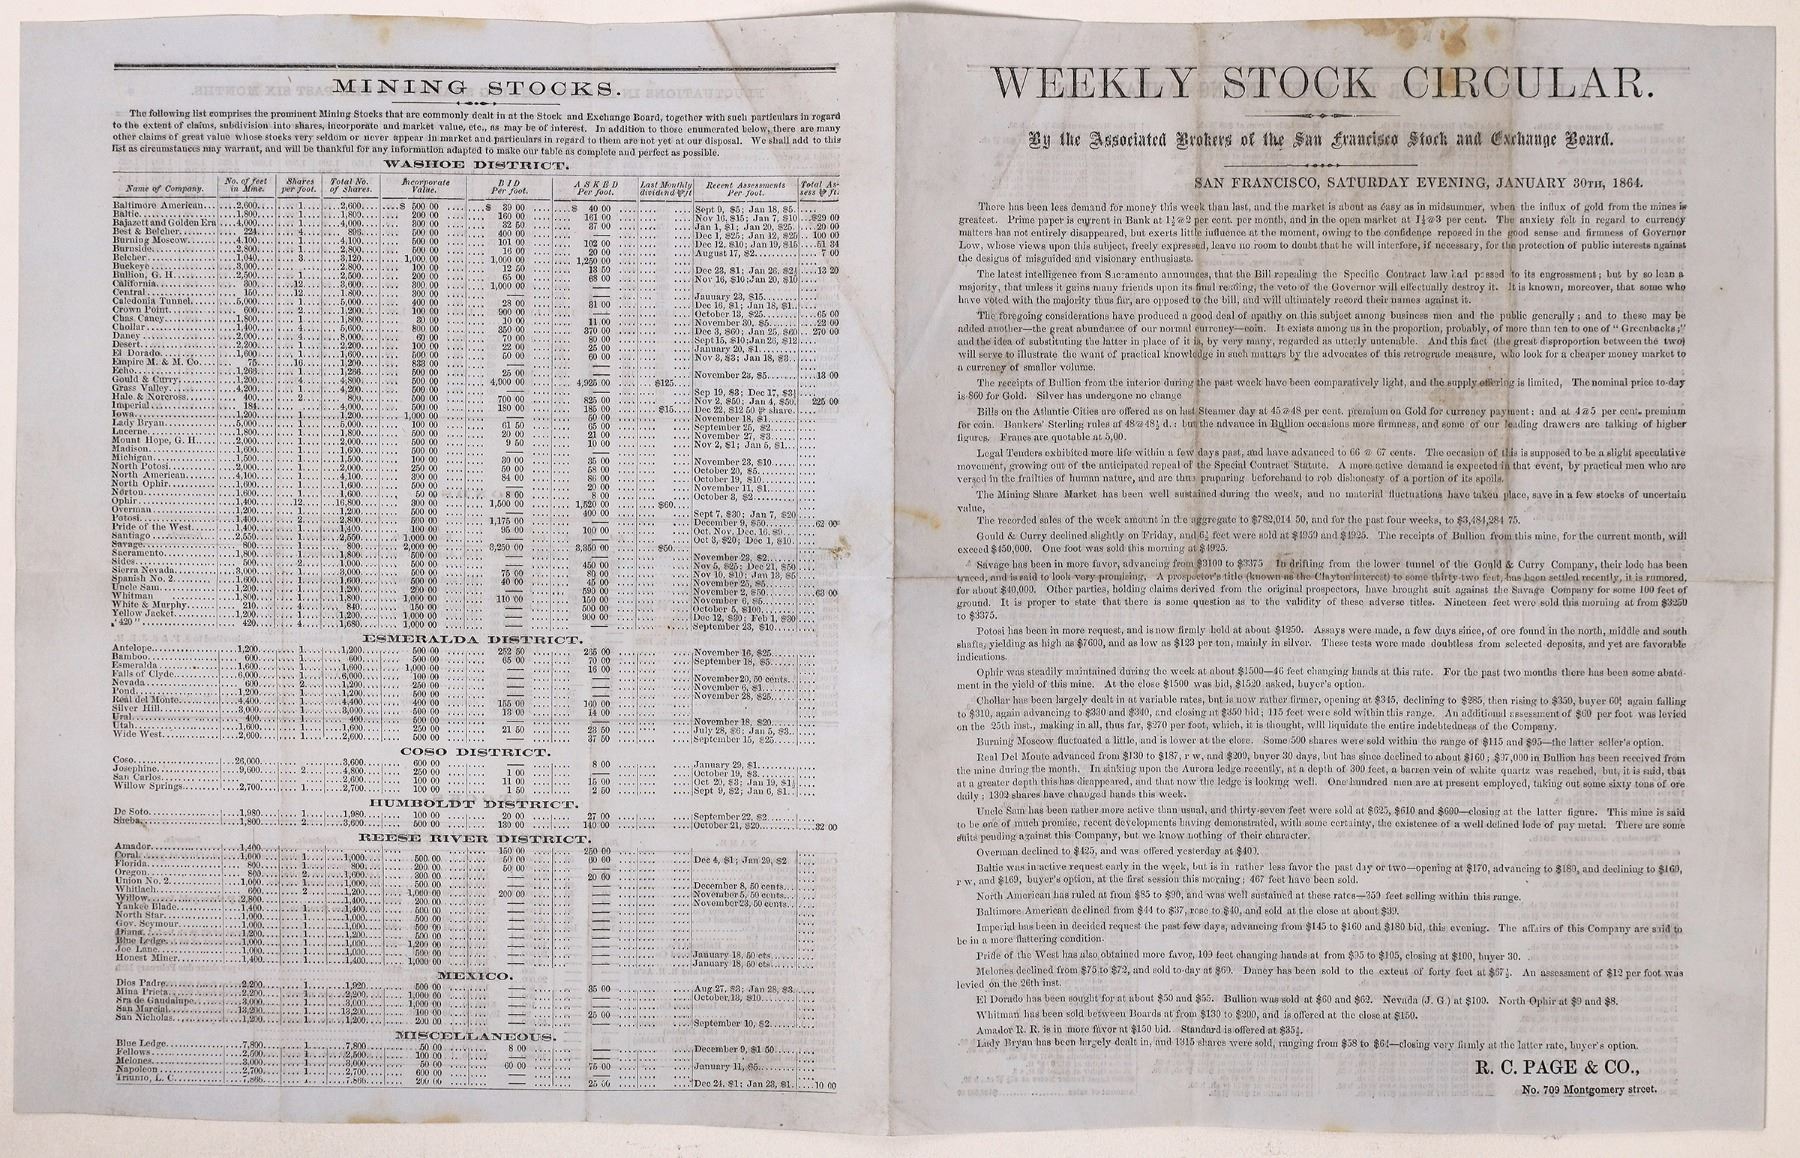 MINING STOCKS.
The following list comprises the prominent Mining Stocks that are commonly dealt in at the Stock and Exchange Board, together with such particulars in regard
to the extent of claims, subdivision into shares, incorporate and market value, etc., as may be of interest. In addition to those enumerated below, there are many
other claims of great value whose stocks very seldom or never appear in market and particulars in regard to them are not yet at our disposal. We shall add to this
list as circumstances may warrant, and will be thankful for any information adapted to make our table as complete and perfect as possible.
WASHOE DISTRICT.
Name of Company. No. of feet in Mine. Shares per foot. Total No. of Shares. Incorporate Value. BID Per foot. ASKED Per foot. Last Monthly dividend ⅌ ft Recent Assessments Per foot. Total Assess ⅌ ft.
Baltimore American 2,600 1 2,600 $ 500 00 $ 39 00 $ 40 00 Sept 9, $5; Jan 18, $5
Baltic 1,800 1 1,800 200 00 160 00 161 00 Nov 16, $15; Jan 7, $10 $29 00
Bajazett and Golden Era 4,000 1 4,000 300 00 32 50 37 00 Jan 1, $1; Jan 20, $25 20 00
Best & Belcher 224 4 896 500 00 400 00 — Dec 1, $25; Jan 12, $25 100 00
Burning Moscow 4,100 1 4,100 500 00 101 00 102 00 Dec 12, $10; Jan 19, $15 51 34
Burnside 2,800 1 2,800 500 00 16 00 20 00 August 17, $2 7 00
Belcher 1,040 3 3,120 1,000 00 1,000 00 1,250 00
Buckeye 3,000 2,800 100 00 12 50 13 50 Dec 23, $1; Jan 26, $2½ 13 20
Bullion, G. H. 2,500 1 2,500 200 00 65 00 68 00 Nov 16, $10; Jan 20, $10
California 300 12 3,600 300 00 1,000 00 —
Central 150 12 1,800 300 00 — — January 23, $15
Caledonia Tunnel 5,000 1 5,000 400 00 28 00 31 00 Dec 16, $1; Jan 18, $1
Crown Point 600 2 1,200 100 00 900 00 — October 13, $25 65 00
Chas. Caney 1,800 1 1,800 30 00 10 00 11 00 November 30, $5 22 00
Chollar 1,400 4 5,600 800 00 350 00 370 00 Dec 3, $60; Jan 25, $60 270 00
Daney 2,000 4 8,000 60 00 70 00 80 00 Sept 15, $10; Jan 26, $12
Desert 2,200 1 2,200 100 00 22 00 25 00 January 20, $1
El Dorado 1,600 1 1,600 500 00 50 00 60 00 Nov 3, $3; Jan 18, $3
Empire M. & M. Co. 75 16 1,200 833 00 — —
Echo 1,266 1 1,266 500 00 25 00 — November 23, $5 13 00
Gould & Curry 1,200 4 4,800 500 00 4,900 00 4,925 00 $125
Grass Valley 4,200 1 4,200 500 00 — — Sep 19, $3; Dec 17, $3
Hale & Norcross 400 2 800 500 00 700 00 825 00 Nov 2, $50; Jan 4, $50 225 00
Imperial 184 4,000 500 00 180 00 185 00 $15 Dec 22, $12 50 ⅌ share
Iowa 1,200 1 1,200 1,000 00 — 50 00 November 18, $1
Lady Bryan 5,000 1 5,000 100 00 61 50 65 00 September 25, $2
Lucerne 1,800 1 1,800 500 00 20 00 21 00 November 27, $3
Mount Hope, G. H. 2,000 1 2,000 500 00 9 50 10 00 Nov 2, $1; Jan 5, $1
Madison 1,600 1 1,600 500 00 — —
Michigan 1,500 1 1,500 100 00 30 00 35 00 November 23, $10
North Potosi 2,000 1 2,000 250 00 50 00 58 00 October 20, $5
North American 4,100 1 4,100 300 00 84 00 86 00 October 19, $10
North Ophir 1,600 1 1,600 500 00 — 20 00 November 11, $1
Norton 1,600 1 1,600 50 00 8 00 8 00 October 3, $2
Ophir 1,400 12 16,800 300 00 1,500 00 1,520 00 $60
Overman 1,200 1 1,200 500 00 — 400 00 Sept 7, $30; Jan 7, $20
Potosi 1,400 2 2,800 500 00 1,175 00 — December 9, $50 62 00
Pride of the West 1,400 1 1,400 100 00 95 00 100 00 Oct, Nov, Dec. 16, $9
Santiago 2,550 1 2,550 1,000 00 — — Oct 3, $20; Dec 1, $10
Savage 800 1 800 2,000 00 3,250 00 3,350 00 $50
Sacramento 1,800 1 1,800 500 00 — — November 23, $2
Sides 500 2 1,000 500 00 — 450 00 Nov 5, $25; Dec 21, $50
Sierra Nevada 3,000 1 3,000 500 00 75 00 80 00 Nov 10, $10; Jan 13, $5
Spanish No. 2 1,600 1 1,600 500 00 40 00 45 00 November 25, $5
Uncle Sam 1,200 1 1,200 200 00 — 590 00 November 2, $50 63 00
Whitman 1,800 1 1,800 1,000 00 110 00 150 00 November 6, $5
White & Murphy 210 4 840 150 00 — 500 00 October 5, $100
Yellow Jacket 1,200 1 1,200 1,000 00 — 900 00 Dec 12, $30; Feb 1, $30
"420" 420 4 1,680 1,000 00 September 23, $10
ESMERALDA DISTRICT.
Antelope 1,200 1 1,200 500 00 252 50 265 00 November 16, $25
Bamboo 600 1 600 500 00 65 00 70 00 September 18, $5
Esmeralda 1,600 1 1,600 1,000 00 — 16 00
Falls of Clyde 6,000 1 6,000 100 00 — — November 20, 50 cents
Nevada 600 2 1,200 250 00 — — November 6, $1
Pond 1,200 1 1,200 500 00 — — November 28, $25
Real del Monte 4,400 1 4,400 400 00 155 00 160 00
Silver Hill 3,000 1 3,000 500 00 13 00 14 00
Ural 400 1 400 500 00 — — November 18, $20
Utah 1,600 1 1,600 250 00 21 50 23 50 July 28, $6; Jan 5, $3
Wide West 2,600 1 2,600 500 00 — 37 50 September 15, $25
COSO DISTRICT.
Coso 26,000 3,600 600 00 — 8 00 January 29, $1
Josephine 9,600 2 4,800 250 00 1 00 — October 19, $3
San Carlos 2,600 100 00 11 00 15 00 Oct 20, $3; Jan 19, $1½
Willow Springs 2,700 1 2,700 100 00 1 50 2 50 Sept 9, $2; Jan 6, $1
HUMBOLDT DISTRICT.
De Soto 1,980 1 1,980 100 00 20 00 27 00 September 22, $2
Sheba 1,800 2 3,600 500 00 130 00 140 00 October 21, $20 32 00
REESE RIVER DISTRICT.
Amador 1,400 150 00 250 00
Coral 1,000 1 1,000 500 00 50 00 60 00 Dec 4, $1; Jan 29, $2
Florida 800 1 800 200 00 50 00 —
Oregon 800 2 1,600 300 00 — 20 00
Union No. 2 1,000 1 1,000 500 00 — — December 8, 50 cents
Whitlach 600 2 1,200 1,000 00 200 00 — November 5, 50 cents
Willow 2,800 1,400 200 00 — — November 23, 50 cents
Yankee Blade 1,400 1 1,400 500 00 — —
North Star 1,000 1 1,000 500 00 — —
Gov. Seymour 1,000 1 1,000 500 00 — —
Diana 1,200 1 1,200 500 00 — —
Blue Ledge 1,000 1 1,000 1,200 00 — —
Joe Lane 1,000 1 1,000 500 00 — — January 18, 50 cts
Honest Miner 1,400 1 1,400 1,000 00 — — January 18, 50 cts
MEXICO.
Dios Padre 2,200 1 1,920 500 00 — 35 00 Aug 27, $3; Jan 28, $3
Mina Prieta 2,200 1 2,200 1,000 00 — — October 13, $10
Sra de Guadalupe 3,000 1 3,000 1,000 00 — —
San Marcial 13,200 1 13,200 100 00 — 25 00
San Nicholas 1,200 1 1,200 200 00 — — September 10, $2
MISCELLANEOUS.
Blue Ledge 7,800 1 7,800 50 00 8 00 — December 9, $1 50
Fellows 2,500 1 2,500 100 00 — —
Melones 3,000 1 3,000 50 00 60 00 75 00 January 11, $5
Napoleon 2,700 1 2,700 600 00 — —
Triunfo, L. C. 7,866 1 7,866 200 00 — 25 00 Dec 24, $1; Jan 23, $1 10 00
WEEKLY STOCK CIRCULAR.
By the Associated Brokers of the San Francisco Stock and Exchange Board.
SAN FRANCISCO, SATURDAY EVENING, JANUARY 30TH, 1864.
There has been less demand for money this week than last, and the market is about as easy as in midsummer, when the influx of gold from the mines is
greatest. Prime paper is current in Bank at 1½@2 per cent. per month, and in the open market at 1½@3 per cent. The anxiety felt in regard to currency
matters has not entirely disappeared, but exerts little influence at the moment, owing to the confidence reposed in the good sense and firmness of Governor
Low, whose views upon this subject, freely expressed, leave no room to doubt that he will interfere, if necessary, for the protection of public interests against
the designs of misguided and visionary enthusiasts.
The latest intelligence from Sacramento announces, that the Bill repealing the Specific Contract law had passed to its engrossment; but by so lean a
majority, that unless it gains many friends upon its final reading, the veto of the Governor will effectually destroy it. It is known, moreover, that some who
have voted with the majority thus far, are opposed to the bill, and will ultimately record their names against it.
The foregoing considerations have produced a good deal of apathy on this subject among business men and the public generally; and to these may be
added another—the great abundance of our normal currency—coin. It exists among us in the proportion, probably, of more than ten to one of "Greenbacks;"
and the idea of substituting the latter in place of it is, by very many, regarded as utterly untenable. And this fact (the great disproportion between the two)
will serve to illustrate the want of practical knowledge in such matters by the advocates of this retrograde measure, who look for a cheaper money market to
a currency of smaller volume.
The receipts of Bullion from the interior during the past week have been comparatively light, and the supply offering is limited, The nominal price to-day
is 860 for Gold. Silver has undergone no change
Bills on the Atlantic Cities are offered as on last Steamer day at 45@48 per cent. premium on Gold for currency payment; and at 4@5 per cent. premium
for coin. Bankers' Sterling rules at 48@48½ d.: but the advance in Bullion occasions more firmness, and some of our leading drawers are talking of higher
figures. Francs are quotable at 5,00.
Legal Tenders exhibited more life within a few days past, and have advanced to 66 @ 67 cents. The occasion of this is supposed to be a slight speculative
movement, growing out of the anticipated repeal of the Special Contract Statute. A more active demand is expected in that event, by practical men who are
versed in the frailties of human nature, and are thus preparing beforehand to rob dishonesty of a portion of its spoils.
The Mining Share Market has been well sustained during the week, and no material fluctuations have taken place, save in a few stocks of uncertain
value,
The recorded sales of the week amount in the aggregate to $782,014 50, and for the past four weeks, to $3,484,284 75.
Gould & Curry declined slightly on Friday, and 6½ feet were sold at $4959 and $4925. The receipts of Bullion from this mine, for the current month, will
exceed $450,000. One foot was sold this morning at $4925.
Savage has been in more favor, advancing from $3100 to $3375 In drifting from the lower tunnel of the Gould & Curry Company, their lode has been
traced, and is said to look very promising, A prospector's title (known as the Clayton interest) to some thirty-two feet, has been settled recently, it is rumored,
for about $40,000. Other parties, holding claims derived from the original prospectors, have brought suit against the Savage Company for some 100 feet of
ground. It is proper to state that there is some question as to the validity of these adverse titles. Nineteen feet were sold this morning at from $3250
to $3375.
Potosi has been in more request, and is now firmly held at about $1250. Assays were made, a few days since, of ore found in the north, middle and south
shafts, yielding as high as $7600, and as low as $123 per ton, mainly in silver. These tests were made doubtless from selected deposits, and yet are favorable
indications.
Ophir was steadily maintained during the week at about $1500—46 feet changing hands at this rate. For the past two months there has been some abate-
ment in the yield of this mine. At the close $1500 was bid, $1520 asked, buyer's option.
Chollar has been largely dealt in at variable rates, but is now rather firmer, opening at $345, declining to $285, then rising to $350, buyer 60; again falling
to $310, again advancing to $330 and $340, and closing at $350 bid; 115 feet were sold within this range. An additional assessment of $60 per foot was levied
on the 25th inst., making in all, thus far, $270 per foot, which, it is thought, will liquidate the entire indebtedness of the Company.
Burning Moscow fluctuated a little, and is lower at the close. Some 500 shares were sold within the range of $115 and $95—the latter seller's option.
Real Del Monte advanced from $130 to $187, r w, and $209, buyer 30 days, but has since declined to about $160; $37,000 in Bullion has been received from
the mine during the month. In sinking upon the Aurora ledge recently, at a depth of 300 feet, a barren vein of white quartz was reached, but, it is said, that
at a greater depth this has disappeared, and that now the ledge is looking well. One hundred men are at present employed, taking out some sixty tons of ore
daily; 1302 shares have changed hands this week.
Uncle Sam has been rather more active than usual, and thirty-seven feet were sold at $625, $610 and $600—closing at the latter figure. This mine is said
to be one of much promise, recent developments having demonstrated, with some certainty, the existence of a well defined lode of pay metal. There are some
suits pending against this Company, but we know nothing of their character.
Overman declined to $425, and was offered yesterday at $400.
Baltic was in active request early in the week, but is in rather less favor the past day or two—opening at $170, advancing to $180, and declining to $160,
r w, and $169, buyer's option, at the first session this morning; 467 feet have been sold.
North American has ruled at from $85 to $90, and was well sustained at these rates—359 feet selling within this range.
Baltimore American declined from $44 to $37, rose to $40, and sold at the close at about $39.
Imperial has been in decided request the past few days, advancing from $145 to $160 and $180 bid, this evening. The affairs of this Company are said to
be in a more flattering condition.
Pride of the West has also obtained more favor, 109 feet changing hands at from $95 to $105, closing at $100, buyer 30.
Melones declined from $75 to $72, and sold to-day at $60. Daney has been sold to the extent of forty feet at $67½. An assessment of $12 per foot was
levied on the 26th inst.
El Dorado has been sought for at about $50 and $55. Bullion was sold at $60 and $62. Nevada (J. G.) at $100. North Ophir at $9 and $8.
Whitman has been sold between Boards at from $130 to $200, and is offered at the close at $150.
Amador R. R. is in more favor at $150 bid. Standard is offered at $35½.
Lady Bryan has been largely dealt in, and 1315 shares were sold, ranging from $58 to $64—closing very firmly at the latter rate, buyer's option.
R. C. PAGE & CO.,
No. 709 Montgomery street.